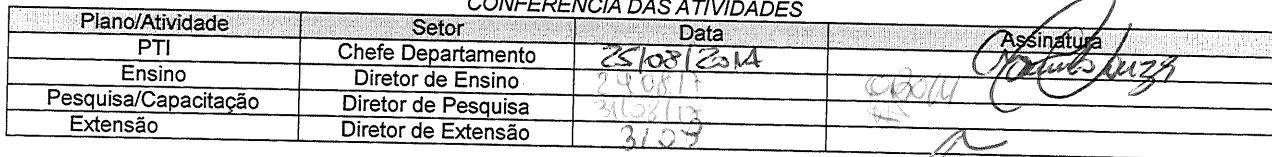 CONFERÊNCIA DAS ATIVIDADES
Plano/Atividade Setor Data Assinatura
PTI Chefe Departamento 25/08/2017
Ensino Diretor de Ensino
Pesquisa/Capacitação Diretor de Pesquisa 31/08/17
Extensão Diretor de Extensão 31/07